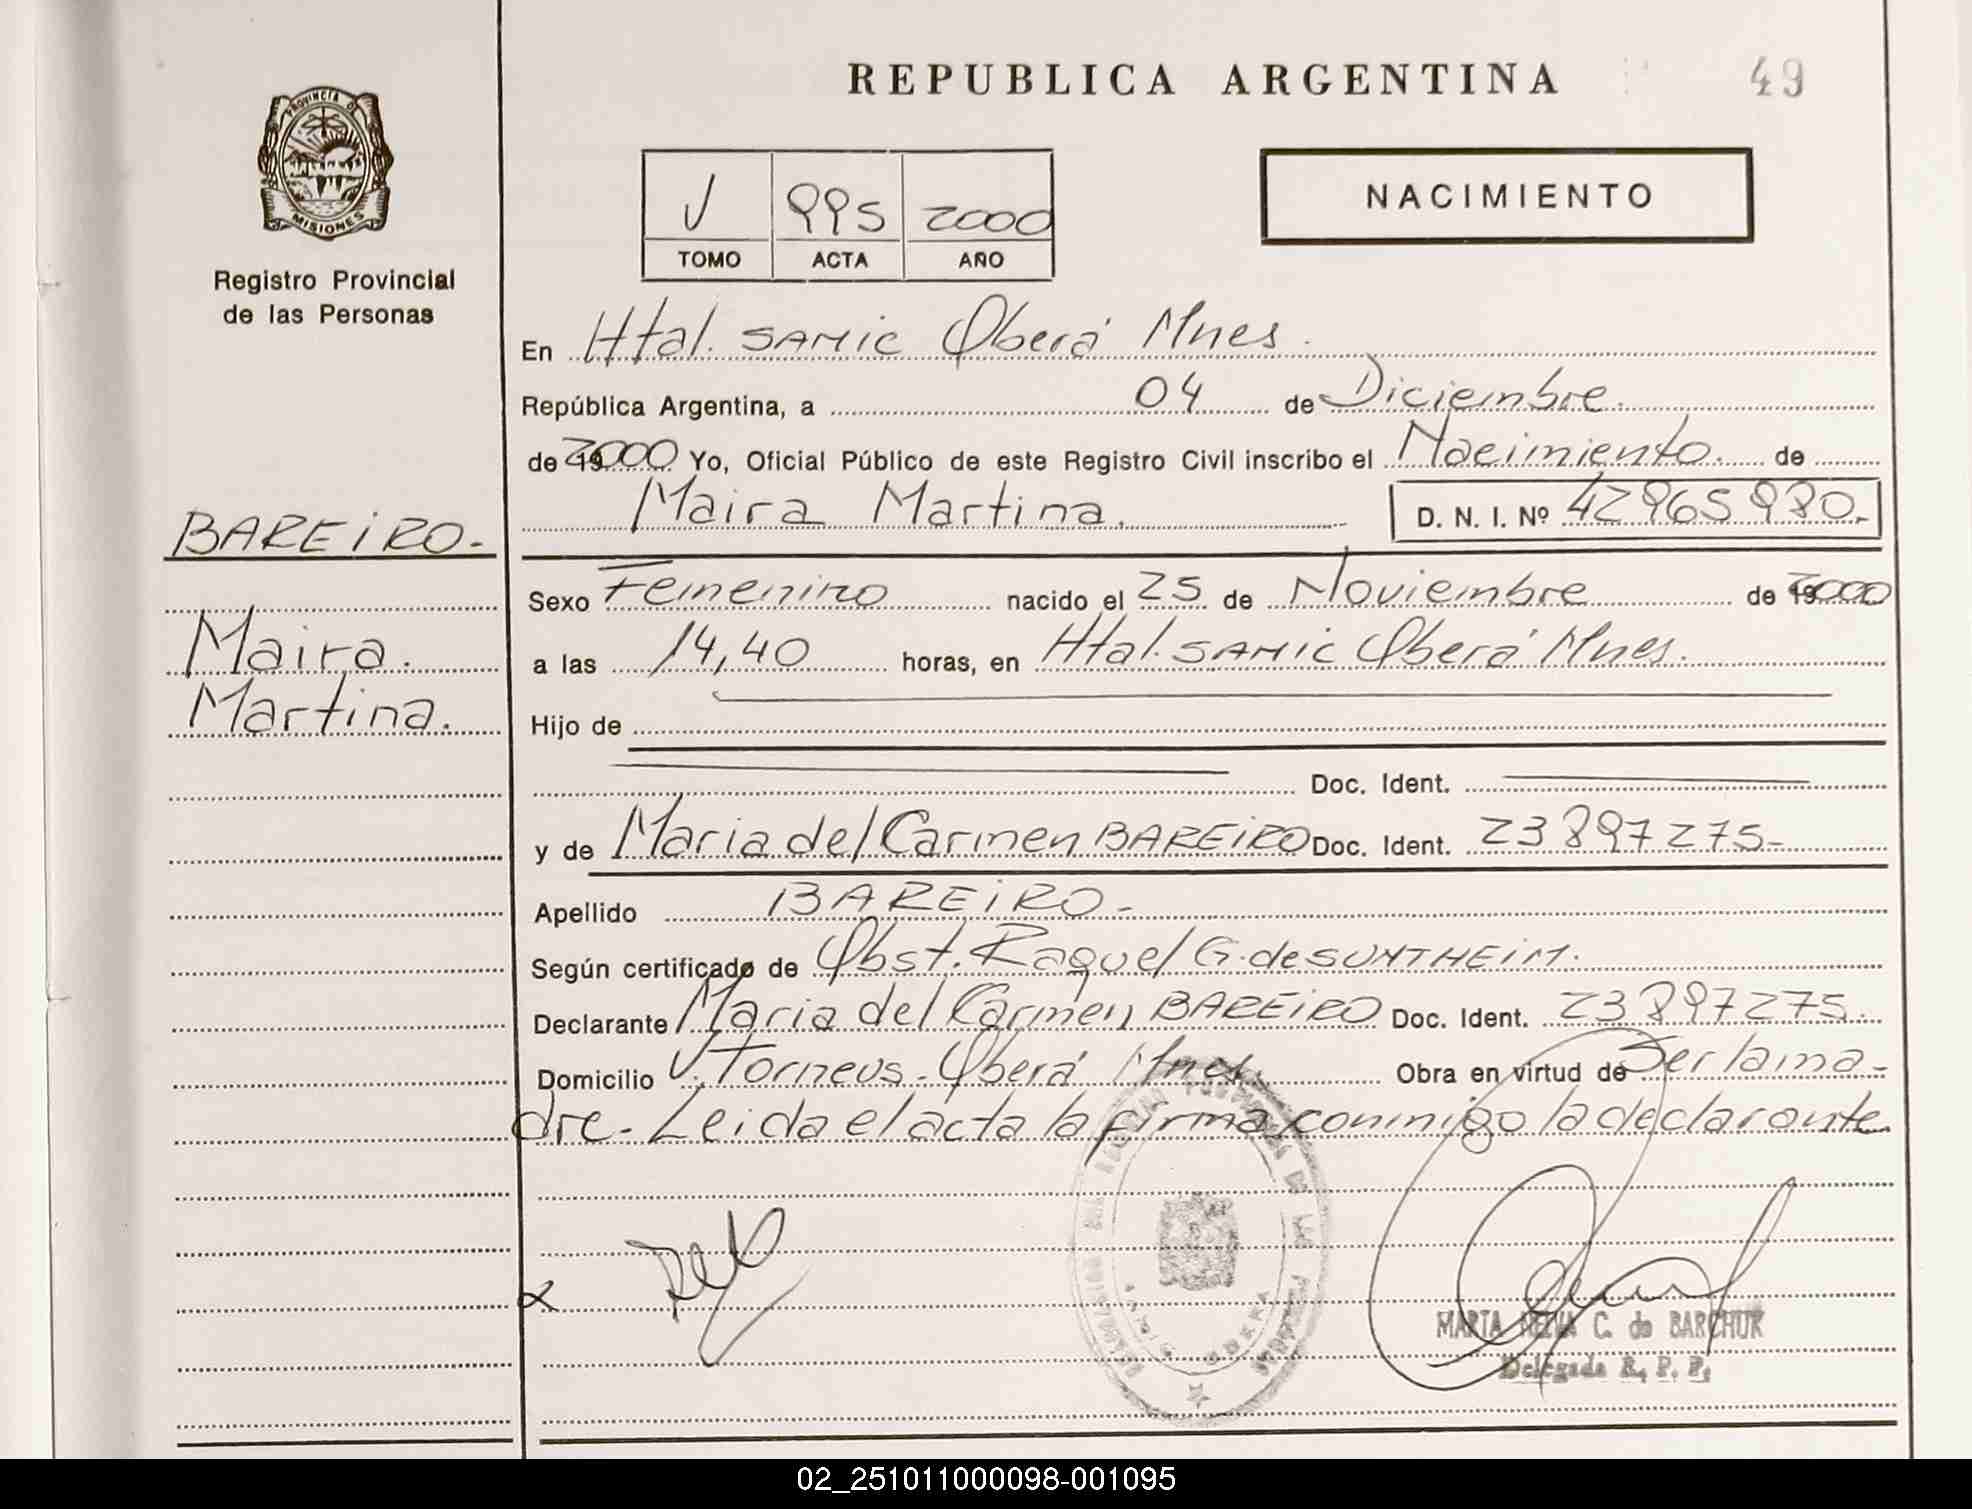 REPUBLICA ARGENTINA
49
PROVINCIA DE
MISIONES
Registro Provincial
de las Personas
V 995 2000
TOMO ACTA AÑO
NACIMIENTO
En Htal. SAMIC Oberá Mnes.
República Argentina, a 04 de Diciembre.
de 2000 Yo, Oficial Público de este Registro Civil inscribo el Nacimiento. de
Maira Martina. D. N. I. Nº 42965980.-
BAREIRO.-
Maira.
Martina.
Sexo Femenino nacido el 25 de Noviembre de 2000
a las 14,40 horas, en Htal. SAMIC Oberá Mnes.
Hijo de
Doc. Ident.
y de Maria del Carmen BAREIRO Doc. Ident. 23897275-
Apellido BAREIRO.-
Según certificado de Obst. Raquel G. de SUNTHEIM.
Declarante Maria del Carmen BAREIRO Doc. Ident. 23897275.-
Domicilio V. Torneus - Oberá Mnes. Obra en virtud de Ser la ma-
dre.- Leida el acta la firma conmigo la declarante.
MARTA C. de BARCHUK
Delegada R. P. P.
02_251011000098-001095